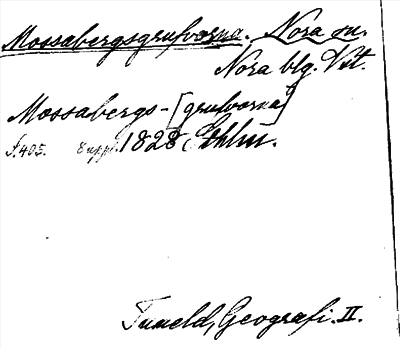 Mossabergsgrufvorna. Nora sn.
Nora blg. Vst.
Mossabergs-[grufvorna]
s. 405. 8 uppl. 1828 Sthlm.
Tuneld, Geografi. II.